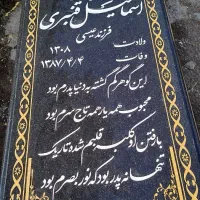 اسماعیل قنبری
فرزند عیسی
ولادت ۱۳۰۸
وفات ۱۳۸۷/۲/۴
این گوهر گم گشته به دنیا پدرم بود
محبوب همه یار همه تاج سرم بود
با رفتن او کلبه قلبم شده تاریک
تنها نه پدر بود که نور بصرم بود